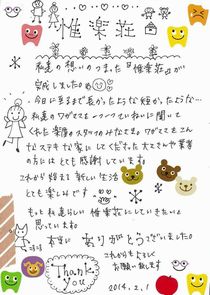 惟楽荘
私達の想いのつまった『惟楽荘』が
完成しました
今に至るまで長かったような短かったような…
私達のワガママを一つ一つていねいに聞いて
くれた スタッフのみなさま。ワガママをこん
なステキな家にしてくださった大工さんや業者
の方には とても感謝しています。
これから始まる新しい生活
とても楽しみです
もっと私達らしい惟楽荘にしていきたいと
思っています。
本当に ありがとうございました。
これからもよろしく
お願い致します
Thank You
2014.2.1